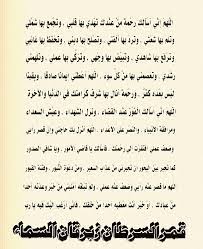 اللهم اني أسألك رحمة من عندك تهدي بها قلبي ، وتجمع بها شملي
وتلم بها شعثي ، وترد بها ألفتي ، وتصلح بها ديني ، وتحفظ بها غائبي
وترفع بها شاهدي ، وتبيض بها وجهي ، وتزكي بها عملي ، وتلهمني
رشدي ، وتعصمني بها من كل سوء . اللهم أعطني إيمانا صادقا ، ويقينا
ليس بعده كفر ، ورحمة أنال بها شرف كرامتك في الدنيا والآخرة
اللهم إني أسألك الفوز عند القضاء ، ونزل الشهداء ، وعيش السعداء
ومرافقة الأنبياء ، والنصر على الأعداء ، اللهم أنزل بك حاجتي وإن قصر رأيي
وضعف عملي افتقرت إلى رحمتك ، فأسألك يا قاضي الأمور ، ويا شافي الصدور
كما تجير بين البحور أن تجيرني من عذاب السعير ، ومن دعوة الثبور ، وفتنة القبور
اللهم ما قصر عنه رأيي وضعف عنه عملي ، ولم تبلغه أمنيتي من خير وعدته أحدا
من عبادك ، أو خير أنت معطيه أحدا من خلقك ، فإني أرغب إليك فيه يا رب
قمر السرطان زبرقان السماء